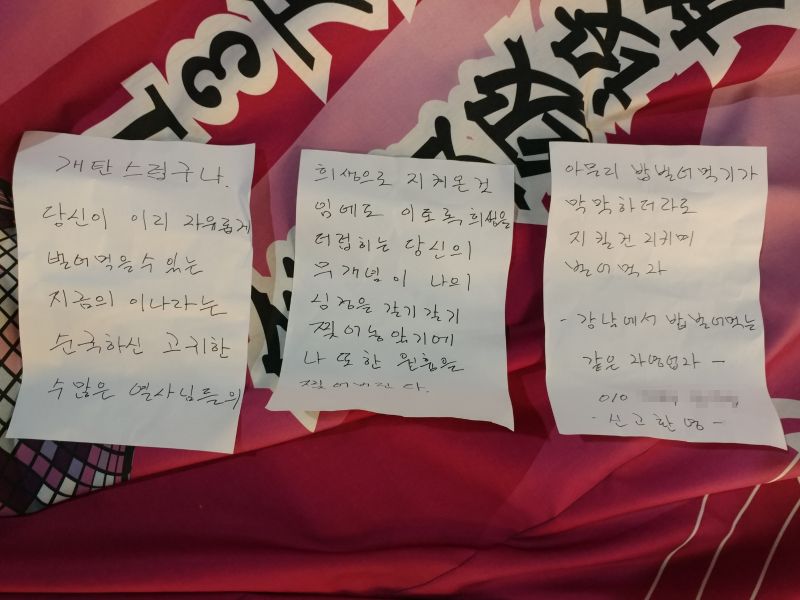 개탄스럽구나.
당신이 이리 자유롭게
벌어먹을수 있는
지금의 이나라는
순국하신 고귀한
수많은 열사님들의
희생으로 지켜온것
임에도 이토록 희생을
더럽히는 당신의
무개념이 나의
심정을 갈기갈기
찢어놓았기에
나 또한 원흉을
찢어버린다.
아무리 밥벌어먹기가
막막하더라도
지킬건 지키며
벌어먹자
- 강남에서 밥벌어먹는
같은 자영업자 -
010
- 신고환영 -